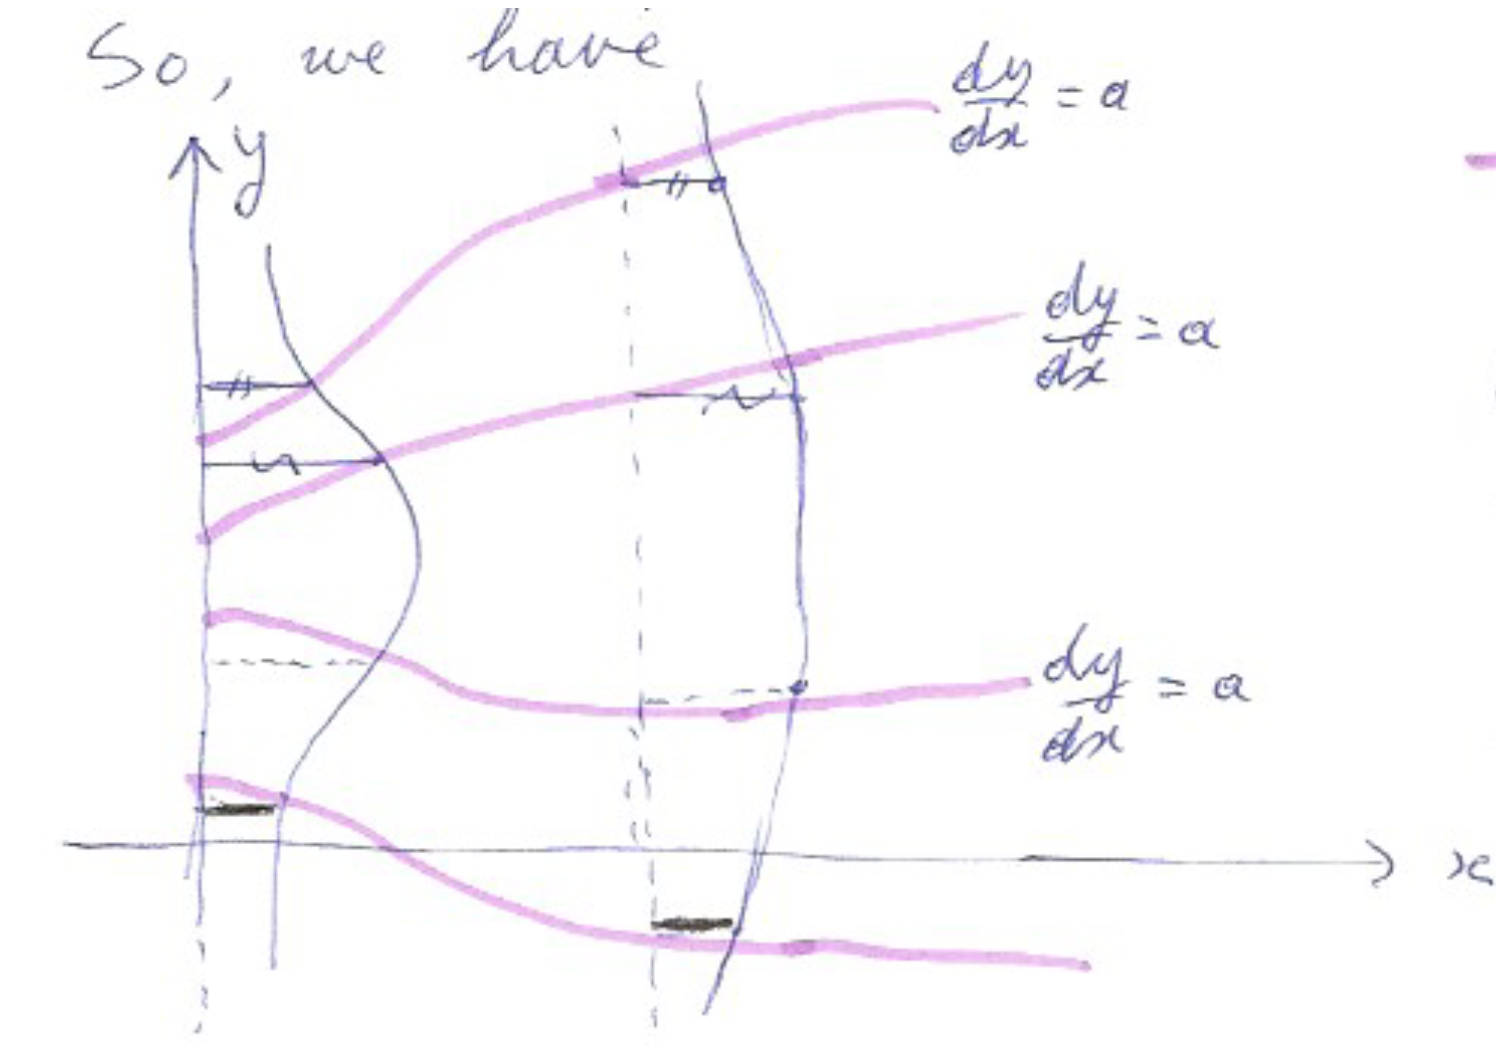 So, we have
dy/dx = a
y
dy/dx = a
dy/dx = a
x